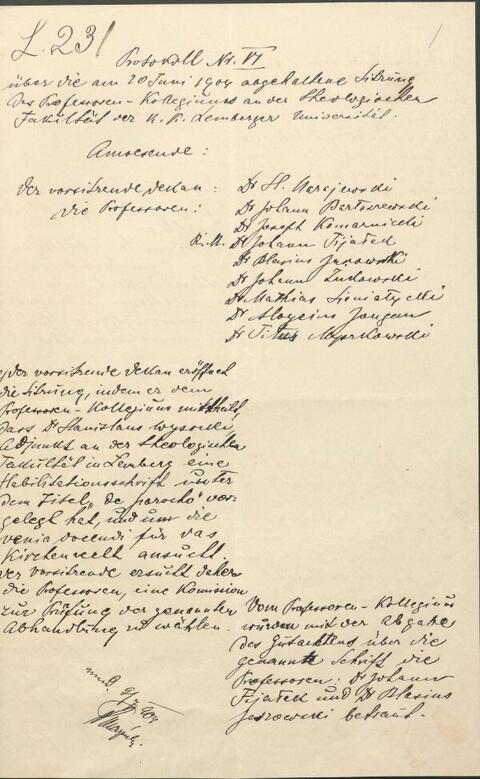 L. 231
1
Protokoll Nr. VI
über die am 20 Juni 1904 abgehaltene Sitzung
des Professoren-Kollegiums an der theologischen
Fakultät der K. K. Lemberger Universität.
Anwesende:
Der vorsitzende Dekan: Dr H. Narajewski
Die Professoren: Dr Johann Bartoszewski
Dr Josef Komarnicki
Dr Johann Fijałek
Dr Blasius Jaszowski
Dr Johann Żukowski
Dr Mathias Sieniatycki
Dr Aloysius Jougan
Dr Titus Myszkowski
Der vorsitzende Dekan eröffnet
die Sitzung, indem er dem
Professoren-Kollegium mittheilt,
dass Dr Stanislaus Wysocki,
Adjunkt an der theologischen
Fakultät in Lemberg eine
Habilitationsschrift unter
dem Titel „de parocho" vor-
gelegt hat, und um die
venia docendi für das
Kirchenrecht ansucht.
Der Vorsitzende ersucht daher
die Professoren, eine Komission
zur Prüfung der genannten
Abhandlung zu wählen.
Vom Professoren-Kollegium
wurden mit der Abgabe
des Gutachtens über die
genannte Schrift die
Professoren: Dr Johann
Fijałek und Dr Blasius
Jaszowski betraut.